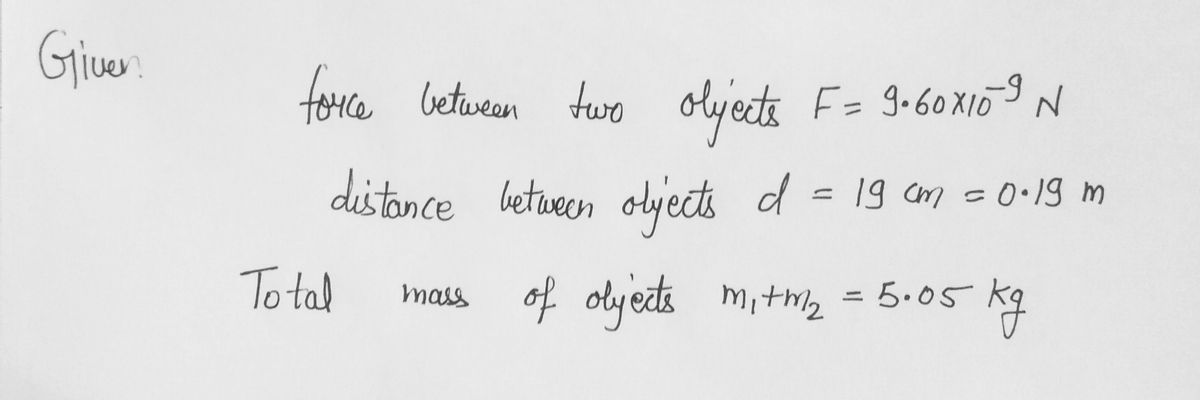 Given:
force between two objects F = 9.60x10⁻⁹ N
distance between objects d = 19 cm = 0.19 m
Total mass of objects m₁+m₂ = 5.05 kg